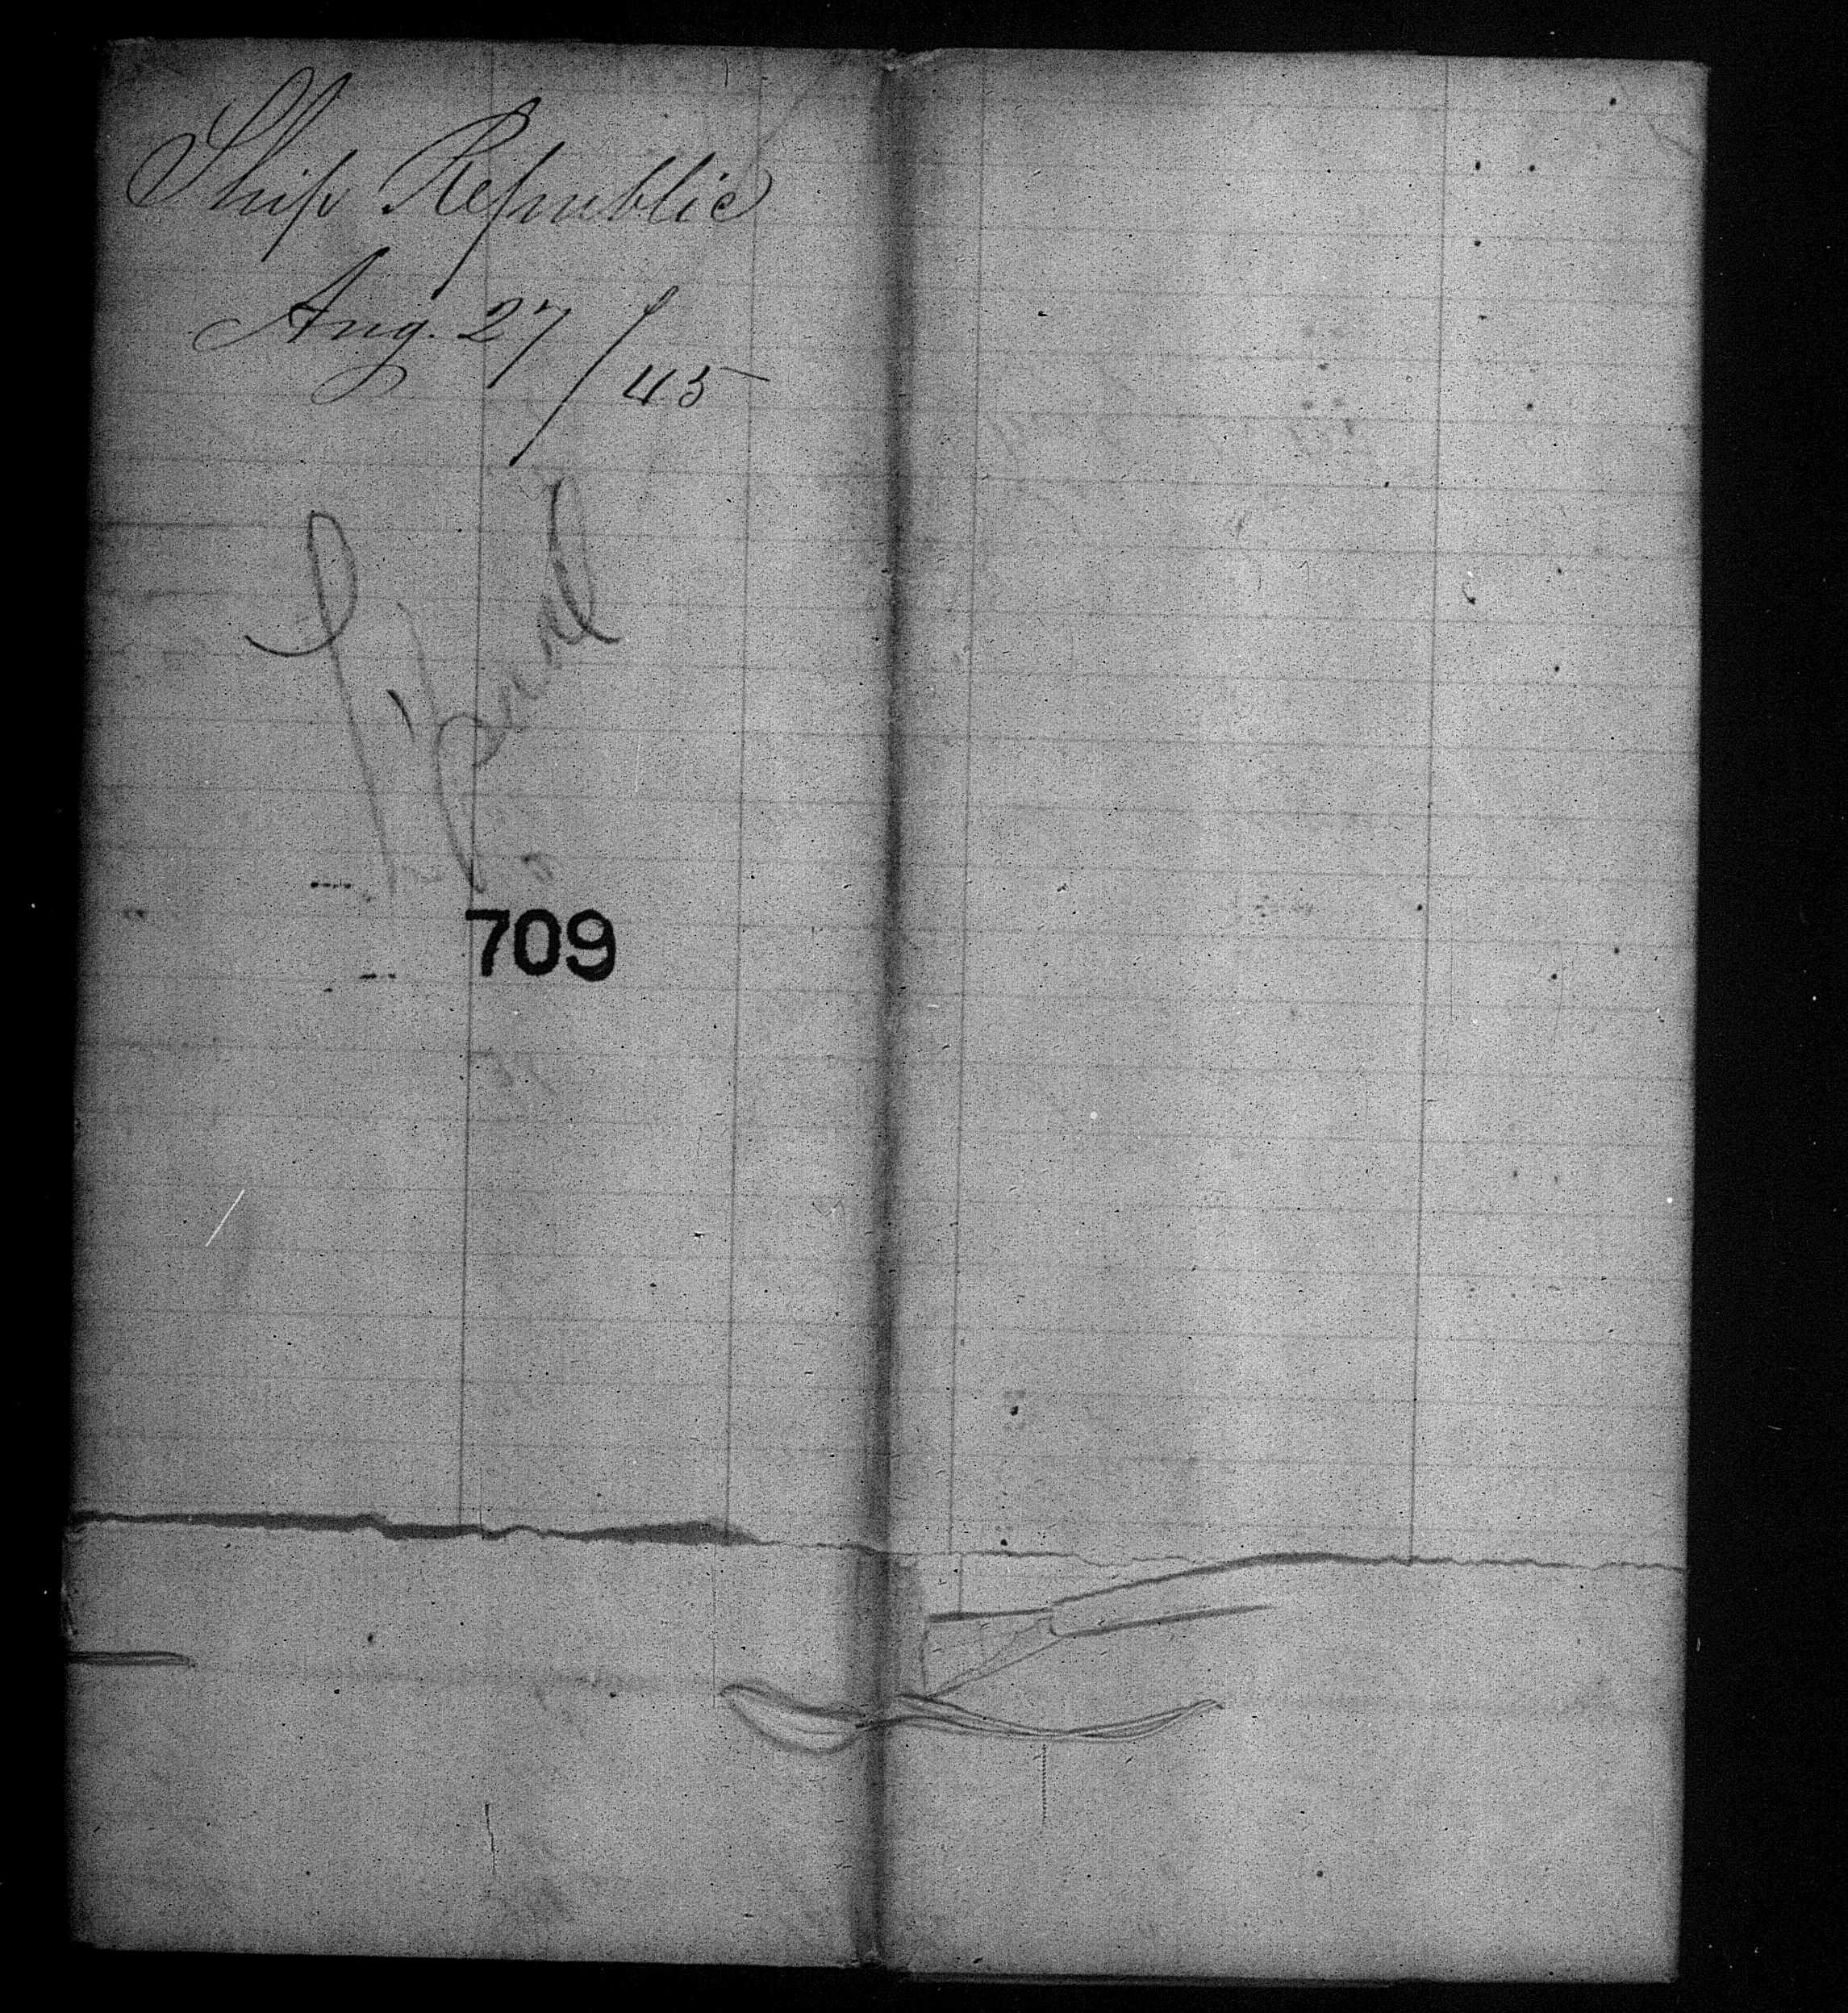 Ship Republic
Aug. 27/45
709